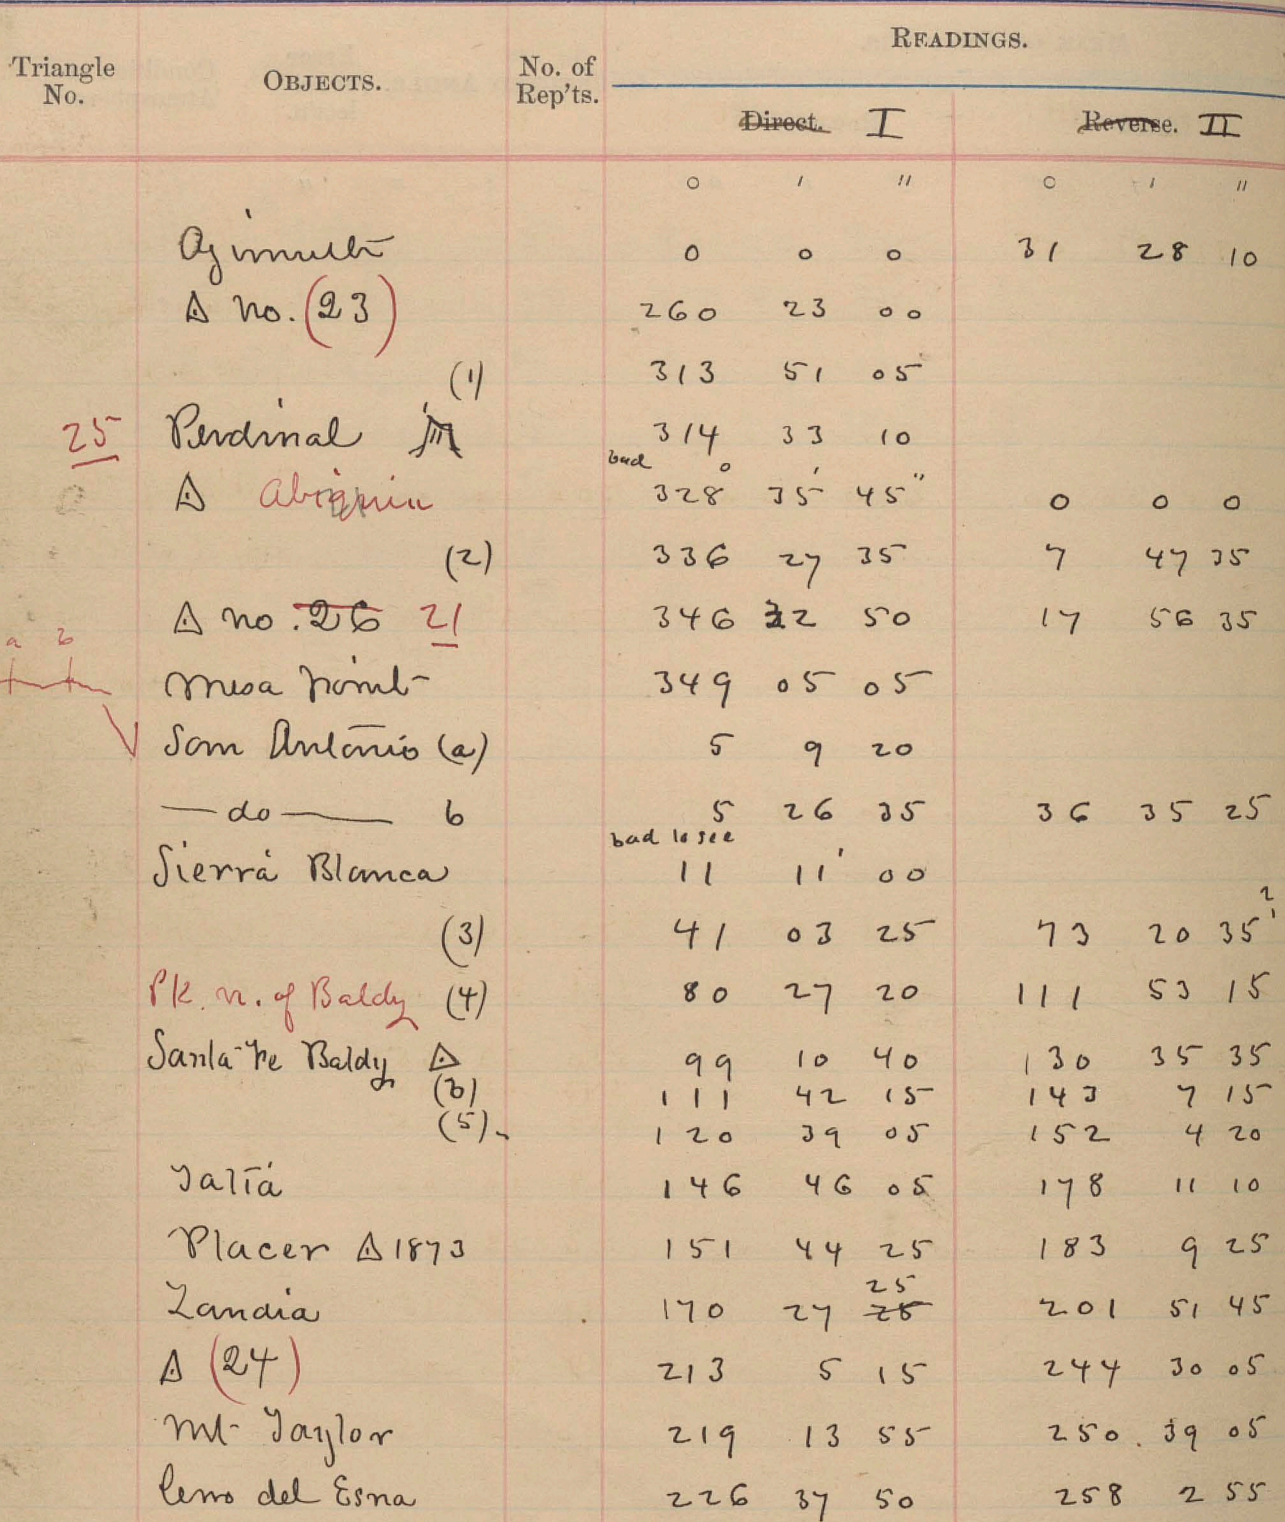 READINGS.
Triangle No. OBJECTS. No. of Rep'ts. Direct. I Reverse. II
° ′ ″ ° ′ ″
Azimuth 0 0 0 31 28 10
△ no. (23) 260 23 00
(1) 313 51 05
25 Perdinal 314 33 10
bad ° ′ ″
△ Abiquiu 328 35 45 0 0 0
(2) 336 27 35 7 47 35
△ no. 26 21 346 22 50 17 56 35
a b
Mesa Point 349 05 05
San Antonio (a) 5 9 20
— do — b 5 26 35 36 35 25
bad to see
Sierra Blanca 11 11′ 00
2
(3) 41 03 25 73 20 35
Pk. n. of Baldy (4) 80 27 20 111 53 15
Santa Fe Baldy △ 99 10 40 130 35 35
(6) 111 42 15 143 7 15
(5) 120 39 05 152 4 20
146 46 05 178 11 10
Placer △ 1873 151 44 25 183 9 25
25
Zandia 170 27 25 201 51 45
△ (24) 213 5 15 244 30 05
Mt Taylor 219 13 55 250. 39 05
Cerro del 226 37 50 258 2 55